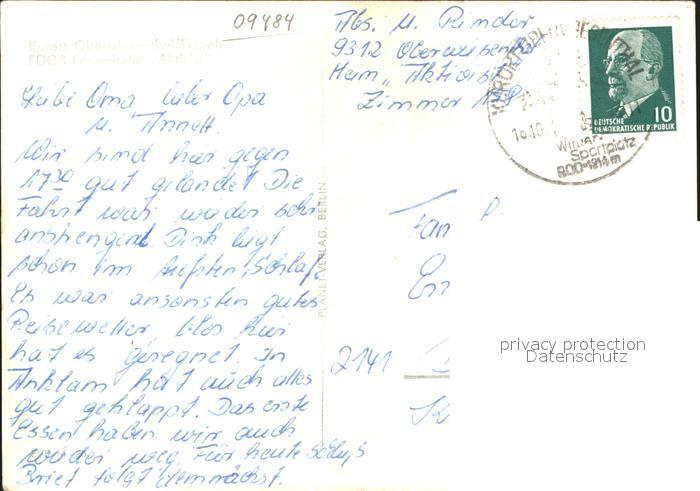 09484
Kurort Oberwiesenthal/Erzgeb.
FDGB-Ferienheim "Aktivist"
Abs. M. Rinder
9312 Oberwiesenthal
Heim "Aktivist"
Zimmer
KURORT OBERWIESENTHAL
16.10.
Winter-
Sportplatz
800-1214 m
10
DEUTSCHE
DEMOKRATISCHE REPUBLIK
Liebe Oma, lieber Opa
u. Annett.
Wir sind hier gegen
17 30 gut gelandet. Die
Fahrt war wieder sehr
anstrengend. Dirk liegt
schon im tiefsten Schlaf.
Es war ansonsten gutes
Reisewetter blos hier
hat es geregnet. In
Anklam hat auch alles
gut geklappt. Das erste
Essen haben wir auch
wieder weg. Für heute Schluß
Brief folgt demnächst.
PLANET-VERLAG, BERLIN
Fam
2141
privacy protection
Datenschutz